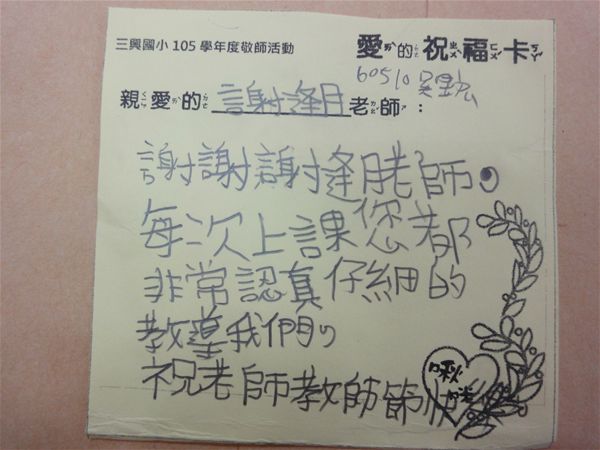 三興國小105學年度敬師活動
愛的祝福卡
60510 吳
親愛的謝逢月老師：
謝謝謝逢月老師。
每次上課您都
非常認真仔細的
教導我們，
祝老師教師節快
啾